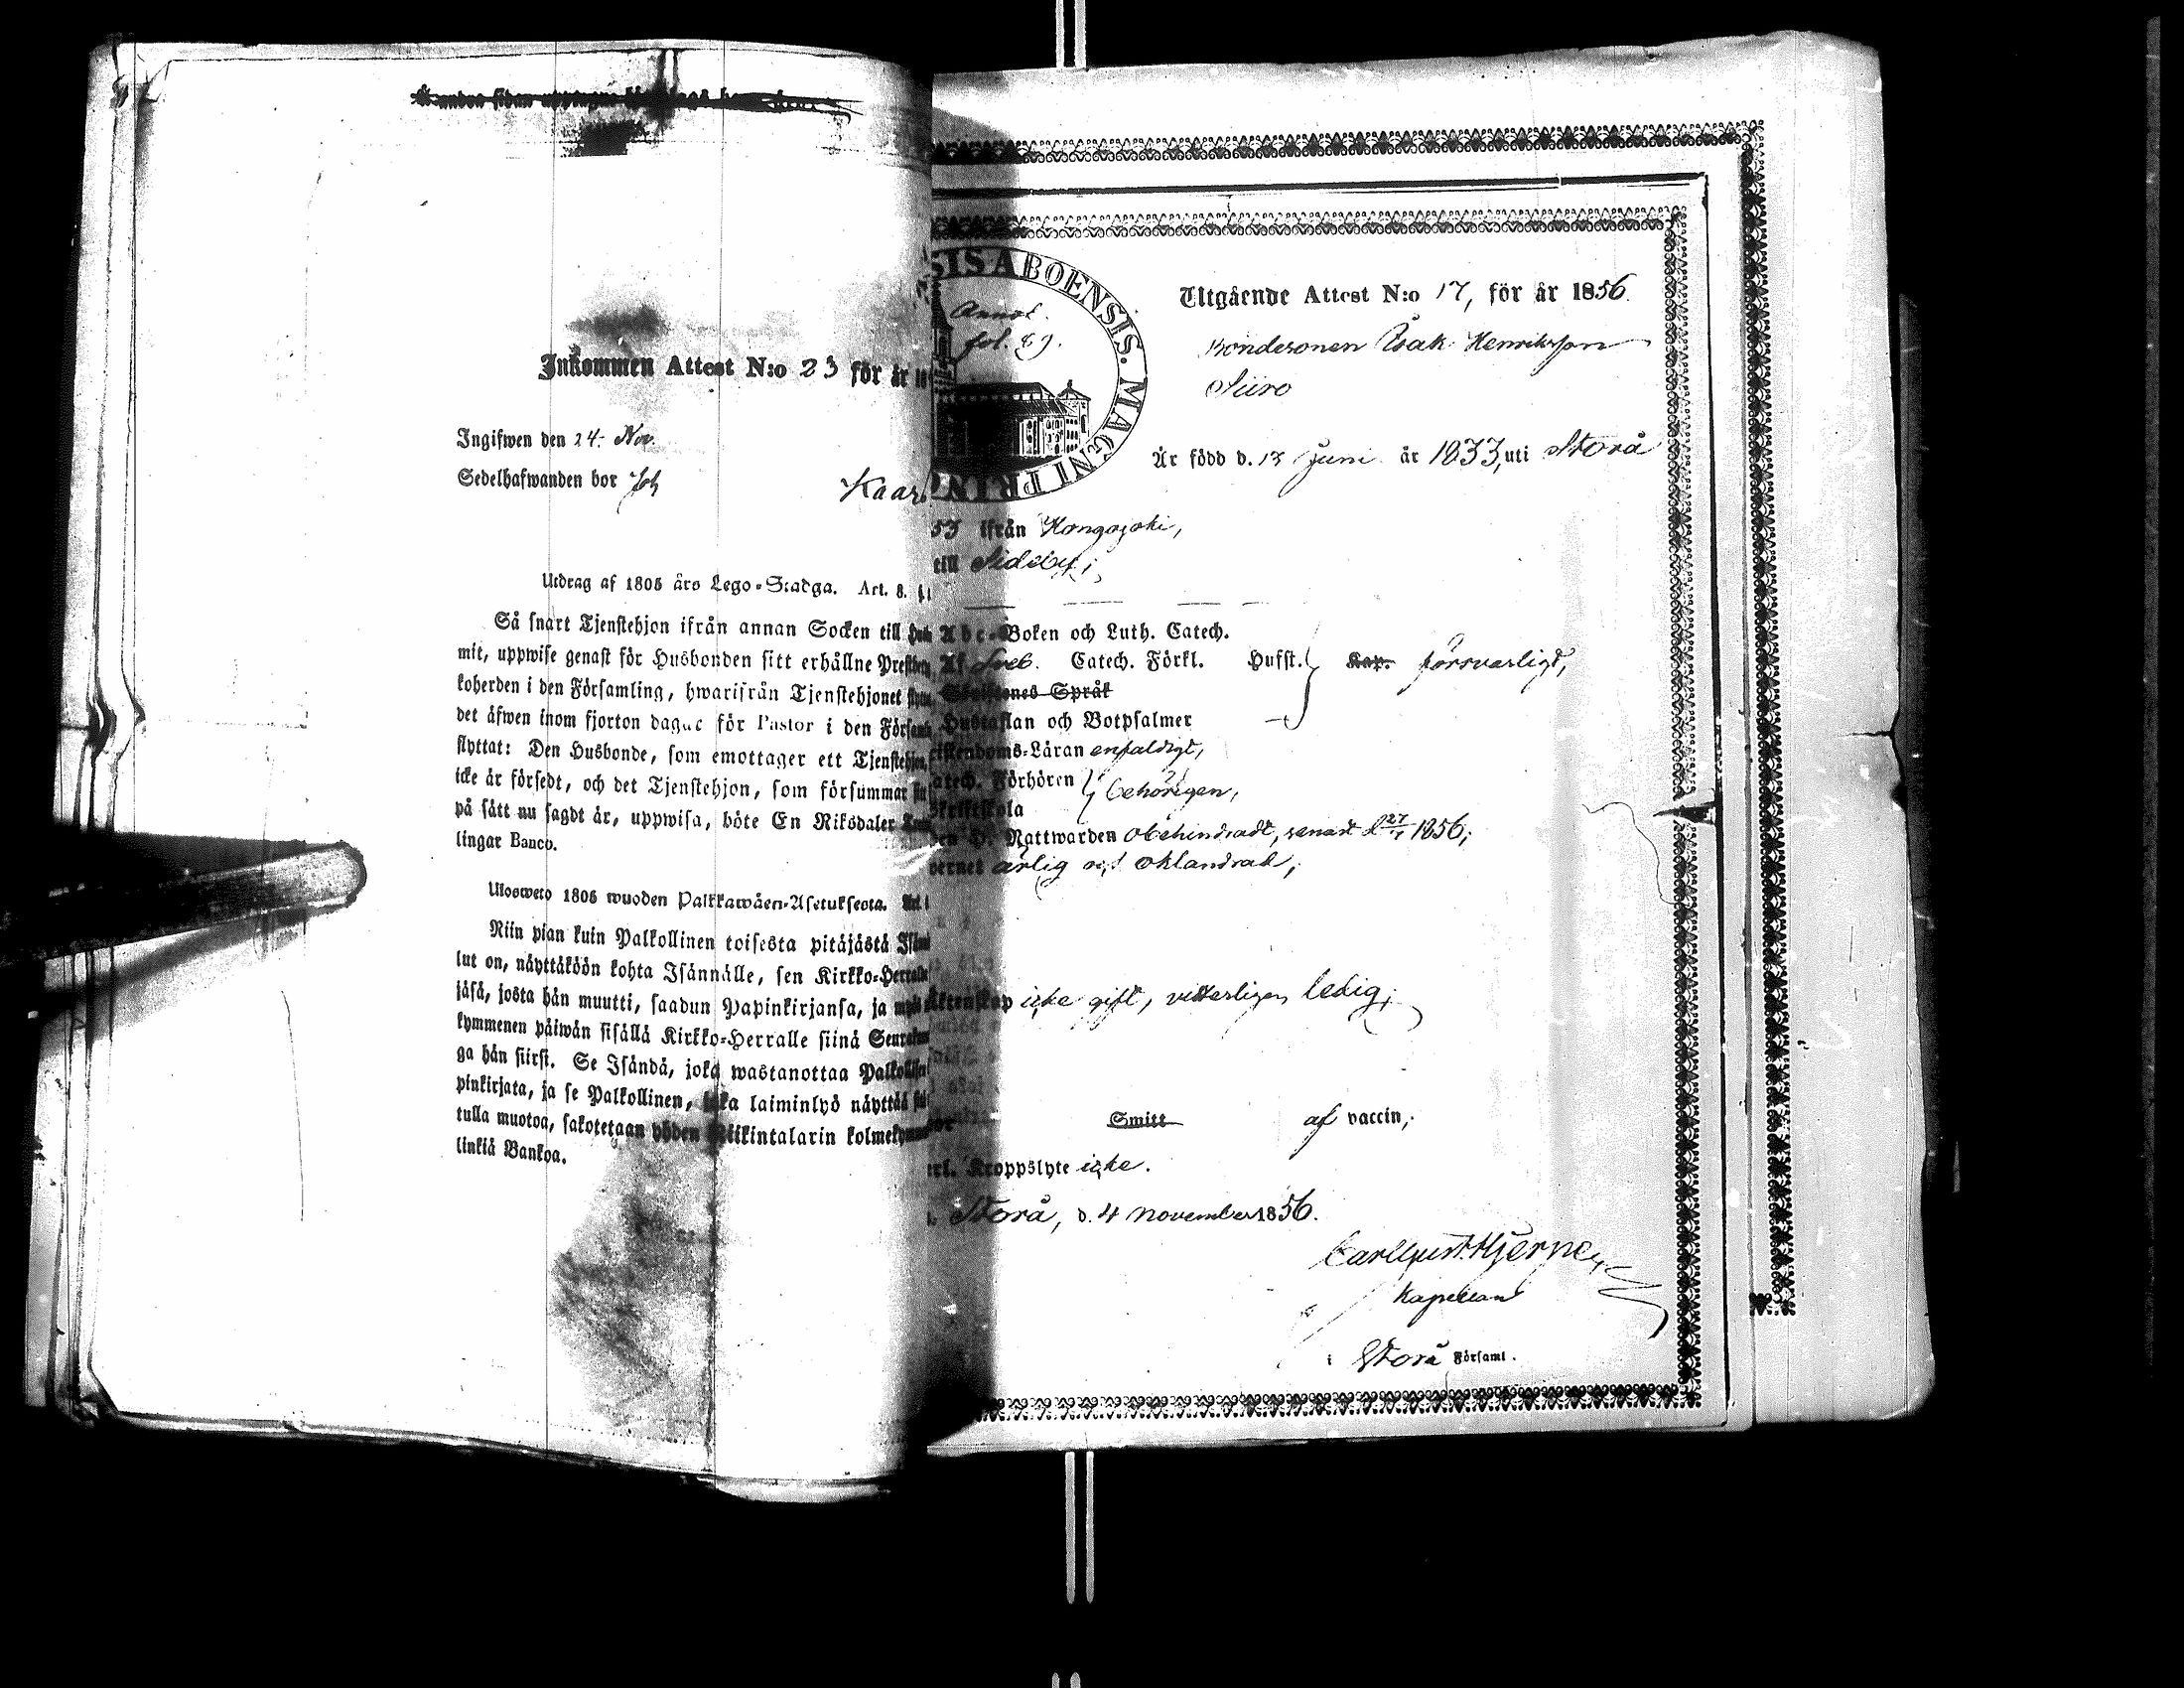 Inkommen Attest N:o 23 för år
Ingifwen den 24. Nov.
Sedelhafwanden bor Joh
Kaar
Utdrag af 1805 års Lego-Stadga. Art. 8.
Så snart Tjenstehjon ifrån annan Socken till
mit, uppwise genast för Husbonden sitt erhållne
koherden i den Församling, hwarifrån Tjenstehjonet
det äfwen inom fjorton dagar för Pastor i den
flyttat: Den Husbonde, som emottager ett
icke är försedt, och det Tjenstehjon, som försummar
på sätt nu sagdt är, uppwisa, böte En Riksdaler
lingar Banco.
Ulosweto 1805 wuoden Palkkawäen-Asetuksesta.
Niin pian kuin Palkollinen toisesta pitäjästä
lut on, näyttäköön kohta Isännälle, sen Kirkko-
jäsä, josta hän muutti, saadun Papinkirjansa, ja
kymmenen päiwän sisällä Kirkko-Herralle siinä
ga hän siirst. Se Isändä, joka wastanottaa
pinkirjata, ja se Palkollinen, joka laiminlyö näyttää
tulla muotoa, sakotetaan yhden Riikintalarin
linkiä Bankoa.
SIS ABOENSIS. MAGNI PRIN
Annot.
fol. 89.
Utgående Attest N:o 17, för år 1856.
Bondesonen Isak Henriksson
Siiro
Är född d. 13 Juni år 1833, uti Storå
53 ifrån Kongajoki,
till Sideby;
Abc-Boken och Luth. Catech.
Af Sveb. Catech. Förkl. Hufst. Kap. försvarligt,
Språk
Hustaflan och Botpsalmer
Läran enfaldigt,
Förhören
behörigen,
Skriftskola
Nattwarden obehindradt, senast d 1856;
ärlig och oklandrad;
Äktenskap icke gift, vitterligen ledig;
Smitt af vaccin;
Kroppslyte icke.
Storå, d. 4 november 1856.
Hjerpe
Kapellan
i Storå Församl.